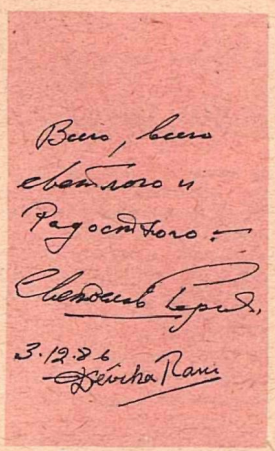 Всего, всего
светлого и
Радостного —
Святослав Рерих.
3.12.86
Dévika Rani